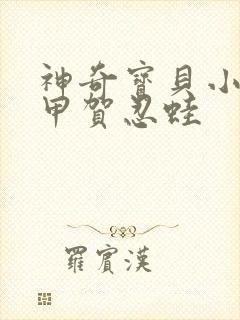 神奇寶貝小
甲賀忍蛙
羅賓漢